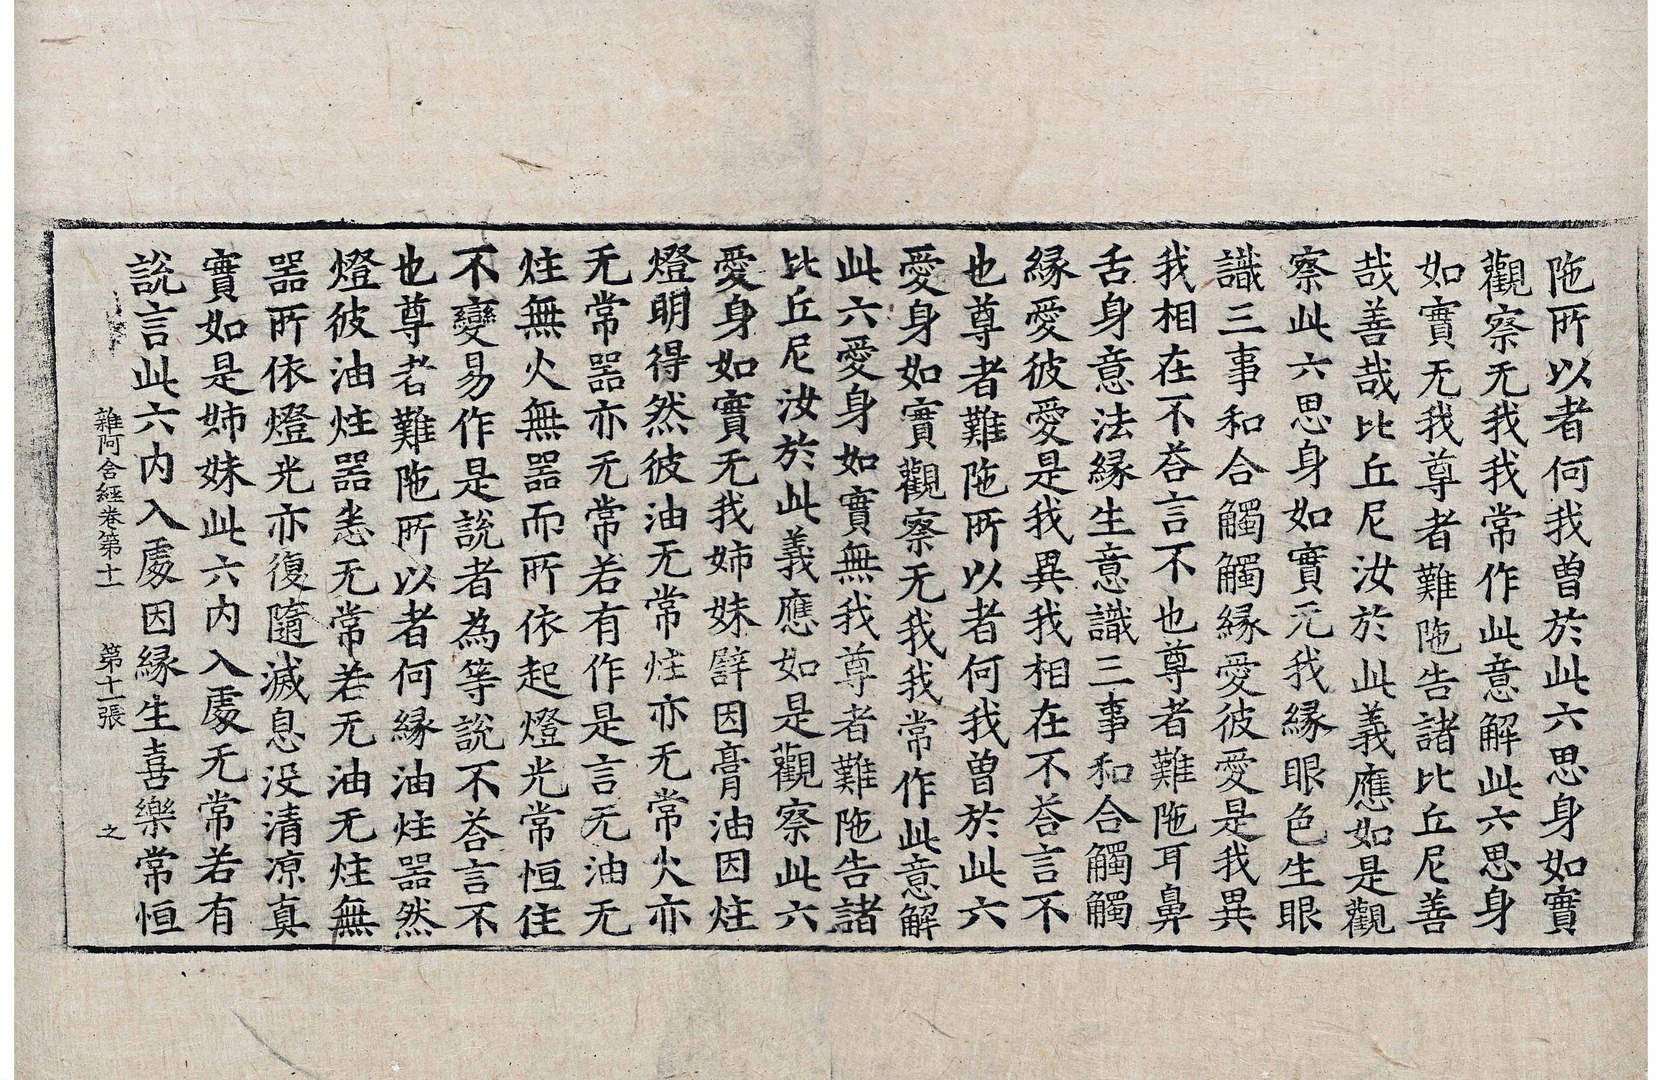 陁所以者何我曽於此六思身如實
觀察无我我常作此意解此六思身
如實无我尊者難陁告諸比丘尼善
哉善哉比丘尼汝於此義應如是觀
察此六思身如實无我緣眼色生眼
識三事和合觸觸緣愛彼愛是我異
我相在不荅言不也尊者難陁耳鼻
舌身意法緣生意識三事和合觸觸
緣愛彼愛是我異我相在不荅言不
也尊者難陁所以者何我曽於此六
愛身如實觀察无我我常作此意解
此六愛身如實無我尊者難陁告諸
比丘尼汝於此義應如是觀察此六
愛身如實无我姉妹譬因膏油因炷
燈明得然彼油无常炷亦无常火亦
无常器亦无常若有作是言无油无
炷無火無器而所依起燈光常恒住
不變易作是說者為等說不荅言不
也尊者難陁所以者何緣油炷器然
燈彼油炷器悉无常若无油无炷無
器所依燈光亦復隨滅息没清凉真
實如是姉妹此六内入處无常若有
說言此六内入處因緣生喜樂常恒
雜阿含經卷第十一　第十一張　之